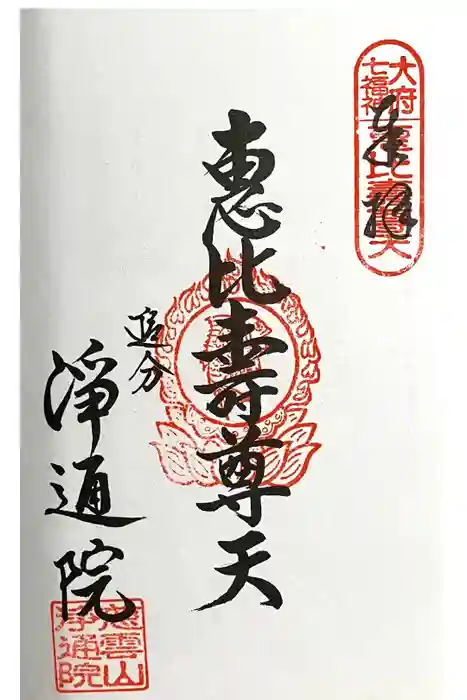 大府
七福神
恵比寿尊天
奉拝
恵比寿尊天
追分
浄通院
慈雲山
浄通院